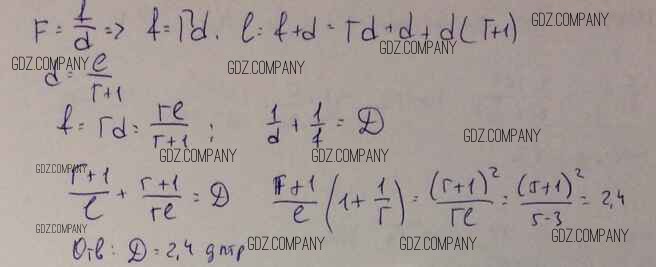 F = f/d => f = Гd. l = f+d = Гd+d+d(Г+1) GDZ.COMPANY
GDZ.COMPANY d = l/Г+1 GDZ.COMPANY GDZ.COMPANY
f = Гd = Гl/Г+1 ; 1/d + 1/f = D GDZ.COMPANY
GDZ.COMPANY GDZ.COMPANY
GDZ.COMPANY Г+1/l + Г+1/Гl = D Г+1/l (1+1/Г) = (Г+1)²/Гl = (5+1)²/5·3 = 2,4 GDZ.COMPANY
GDZ.COMPANY
Отв: D = 2,4 дптр GDZ.COMPANY GDZ.COMPANY GDZ.COMPANY